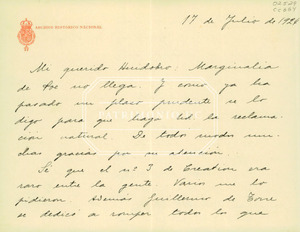 ARCHIVO HISTORICO NACIONAL
17 de Julio de 1928
Mi querido Huidobro: Marginalia
de Poe no llega. Y como ya ha
pasado un plazo prudente se lo
digo para que haga Ud. la reclama-
ción natural. De todos modos mu-
chas gracias por su atención.
Sé que el nº 3 de Creation era
raro entre la gente. Varios me lo
pidieron. Además Guillermo de Torre
se dedicó a romper todos los que